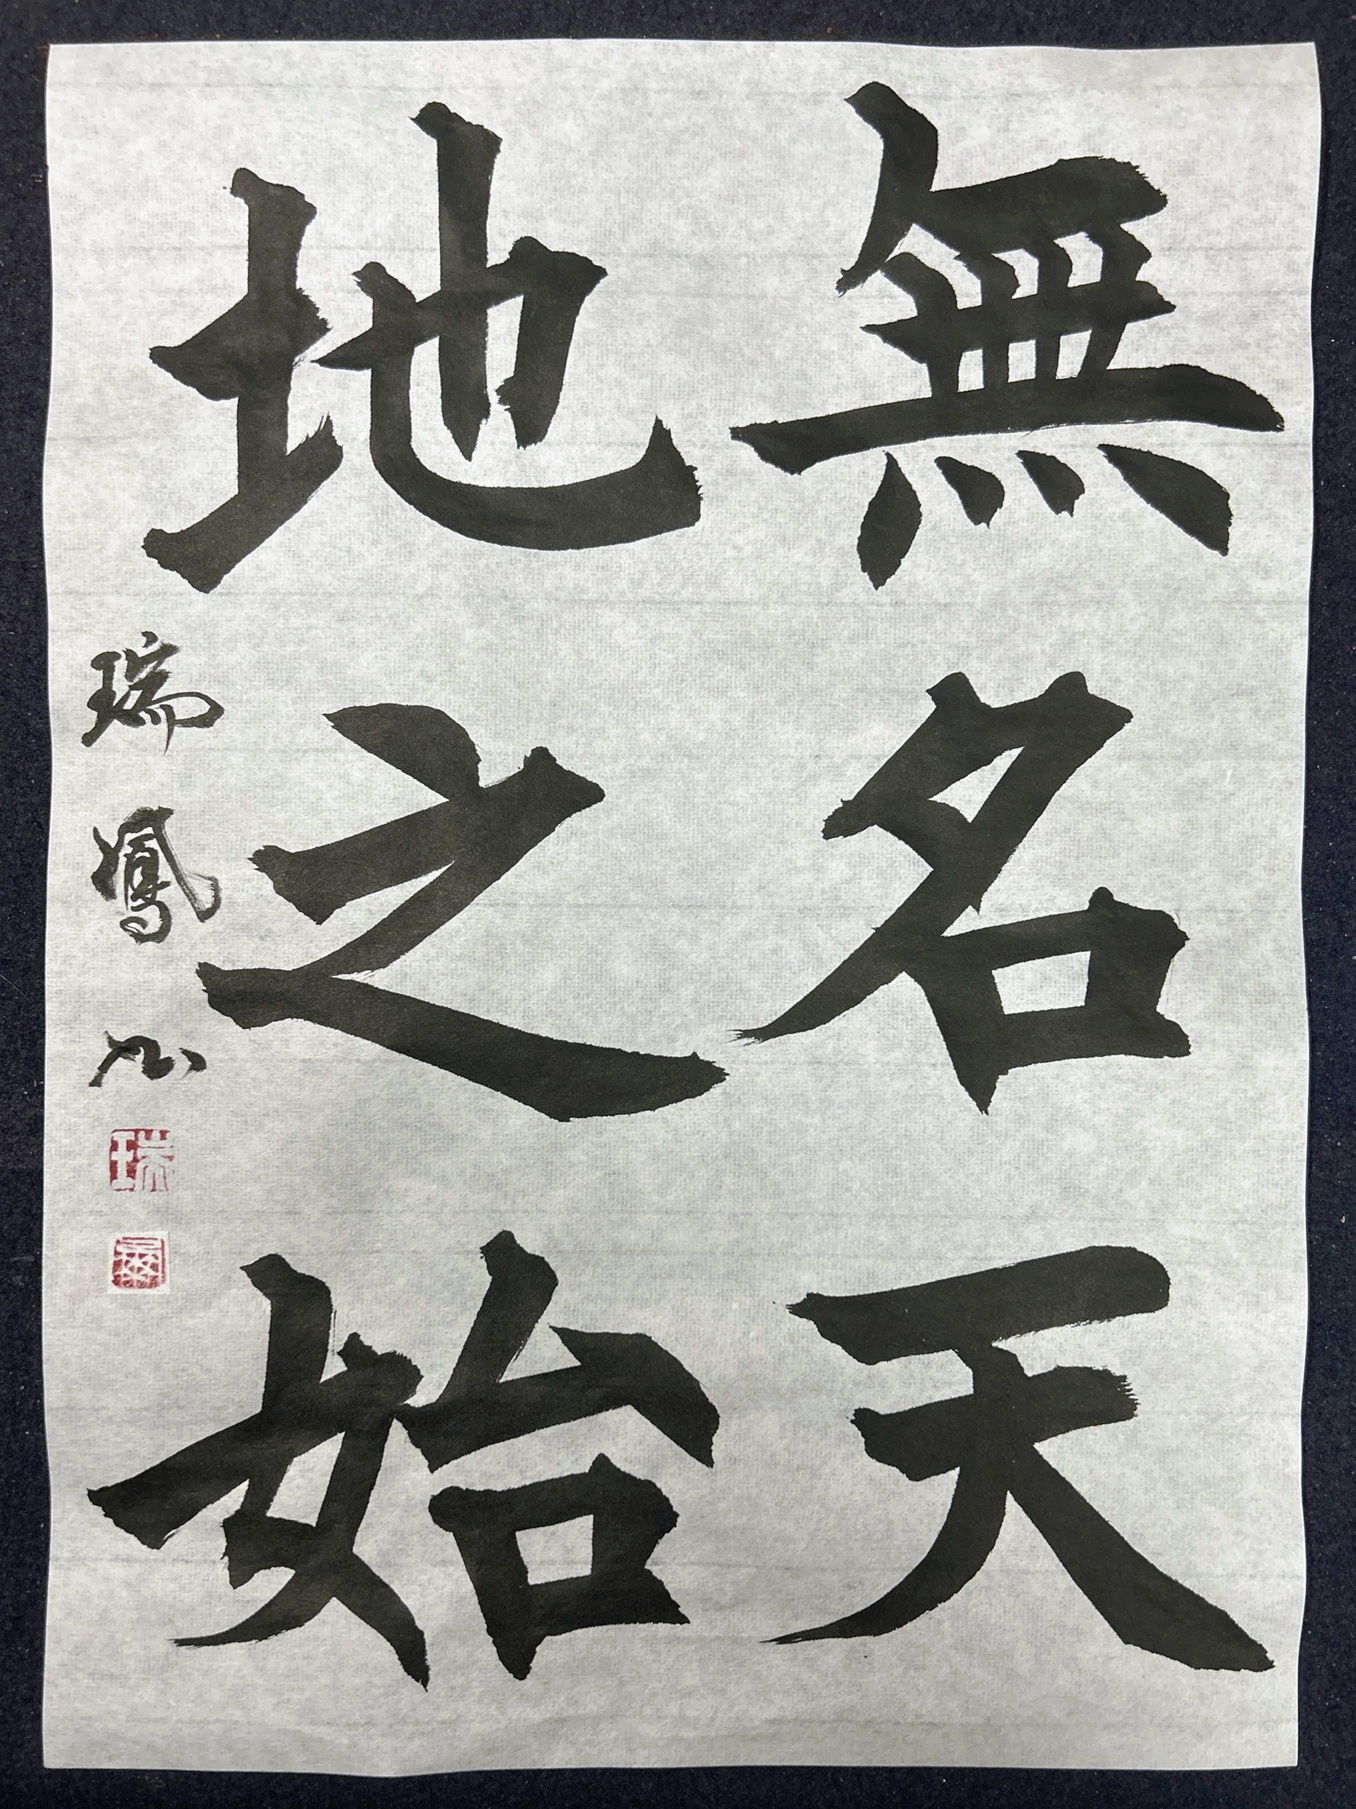 無名天
地之始
瑞鳳書
瑞